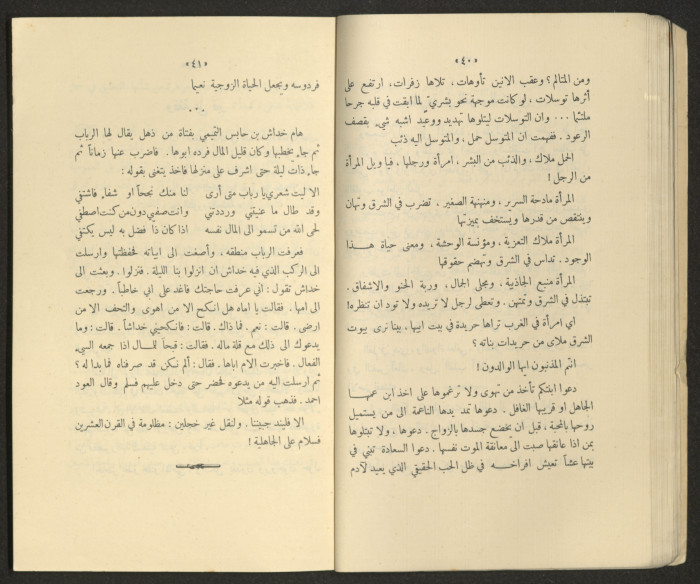 «٤٠»
ومن المتألم؟ وعقب الانين تأوهات، تلاها زفرات، ارتفع على
أثرها توسلات، لو كانت موجهة نحو بشريّ لما ابقت في قلبه جرحا
ملتئما ... وان التوسلات ليتلوها تهديد ووعيد اشبه شيء بقصف
الرعود. ففهمت ان المتوسل حمل، والمتوسل اليه ذئب
الحمل ملاك، والذئب من البشر، امرأة ورجلها، فيا ويل المرأة
من الرجل!
المرأة مادحة السرير، ومنهنية الصغير، تضرب في الشرق وتهان
وينتقص من قدرها ويستخف بميزتها
المرأة ملاك التعزية، ومؤنسة الوحشة، ومعنى حياة هذا
الوجود. تداس في الشرق وتهضم حقوقها
المرأة منبع الجاذبية، ومجلى الجمال، وربة الحنو والاشفاق.
تبتذل في الشرق وتمتهن. وتعطى لرجل لا تريده ولا تود ان تنظره!
اي امرأة في الغرب تراها حريدة في بيت ابيها، بينا نرى بيوت
الشرق ملأى من حريدات بناته؟
انتم المذنبون ايها الوالدون!
دعوا ابنتكم تأخذ من تهوى ولا ترغموها على اخذ ابن عمها
الجاهل او قريبها الغافل. دعوها تمد يدها الناعمة الى من يستميل
روحها بالمحبة، قبل ان يخضع جسدها بالزواج. دعوها، ولا تبتلوها
بمن اذا عانقها صبت الى معانقة الموت نفسها. دعوا السعادة تبني في
بيتها عشاً تعيش افراخه في ظل الحب الحقيقي الذي يعيد لآدم
«٤١»
فردوسه ويجعل الحياة الزوجية نعيما
...
هام خداش بن حابس التميمي بفتاة من ذهل يقال لها الرباب
ثم جاء يخطبها وكان قليل المال فرده ابوها. فاضرب عنها زماناً ثم
جاء ذات ليلة حتى اشرف على منزلها فاخذ يتغنى بقوله:
الا ليت شعري يا رباب متى أرى لنا منك نجحاً او شفاء فاشتفي
وقد طال ما عنيتني ورددتني وانت صفيي دون من كنت اصطفي
لحى الله من تسمو الى المال نفسه اذا كان ذا فضل به ليس يكتفي
فعرفت الرباب منطقه، وأصغت الى ابياته فحفظتها وارسلت
الى الركب الذي فيه خداش ان انزلوا بنا الليلة. فنزلوا. وبعثت الى
خداش تقول: اني عرفت حاجتك فاغد على ابي خاطباً. ورجعت
الى امها. فقالت يا اماه هل انكح الا من اهوى والتحف الا من
ارضى. قالت: نعم. فما ذاك. قالت: فانكحيني خداشاً. قالت: وما
يدعوك الى ذلك مع قلة ماله. فقالت: قبحاً للمال اذا جمعه السيء
الفعال. فاخبرت الام اباها. فقال: ألم نكن قد صرفناه فما بدا له؟
ثم ارسلت اليه من يدعوه فحضر حتى دخل عليهم فسلم وقال العود
احمد. فذهب قوله مثلا
الا فليند جبيننا. ولنقل غير خجلين: مظلومة في القرن العشرين
فسلام على الجاهلية!